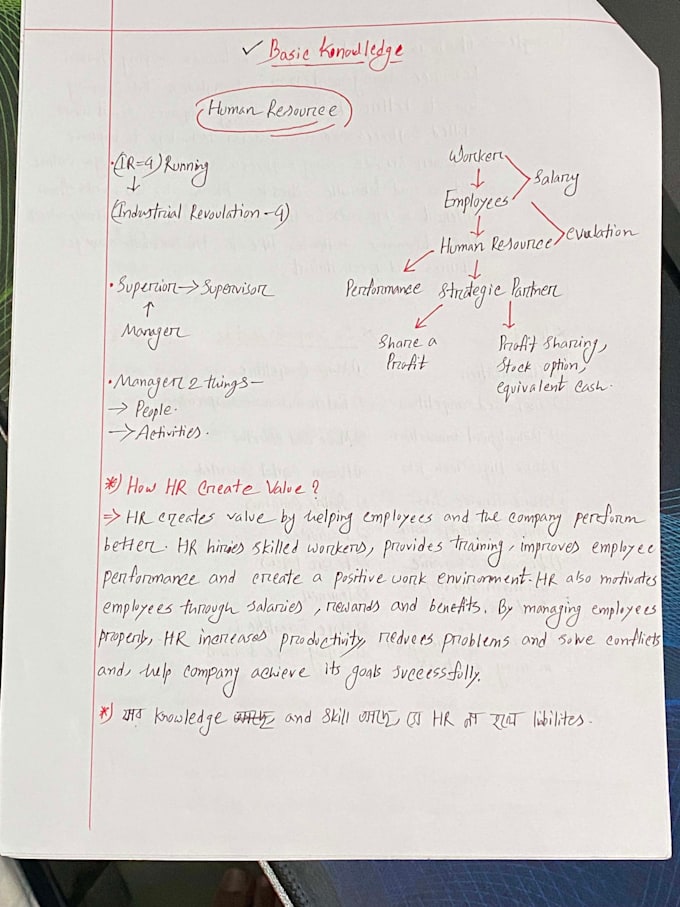 ✓ Basic Knowledge
Human Resource
• (IR=4) Running
↓
(Industrial Revoulation - 4)
• Superior → Supervisor
↑
Manager
• Manager 2 things -
→ People.
→ Activities.
Worker
↓
Employees
Salary
↓
Human Resource
evulation
Performance
Strategic Partner
Share a
Profit
Profit Sharing,
Stock option,
equivalent cash.
*) How HR Create Value?
⇒ HR creates value by helping employees and the company perform
better. HR hiries skilled workers, provides training, improves employee
performance and create a positive work environment. HR also motivates
employees through salaries, rewards and benefits. By managing employees
properly, HR increases productivity, reduces problems and solve conflicts
and, help company achieve its goals successfully.
*) যার knowledge and skill আছে, সে HR না হলে libilites.